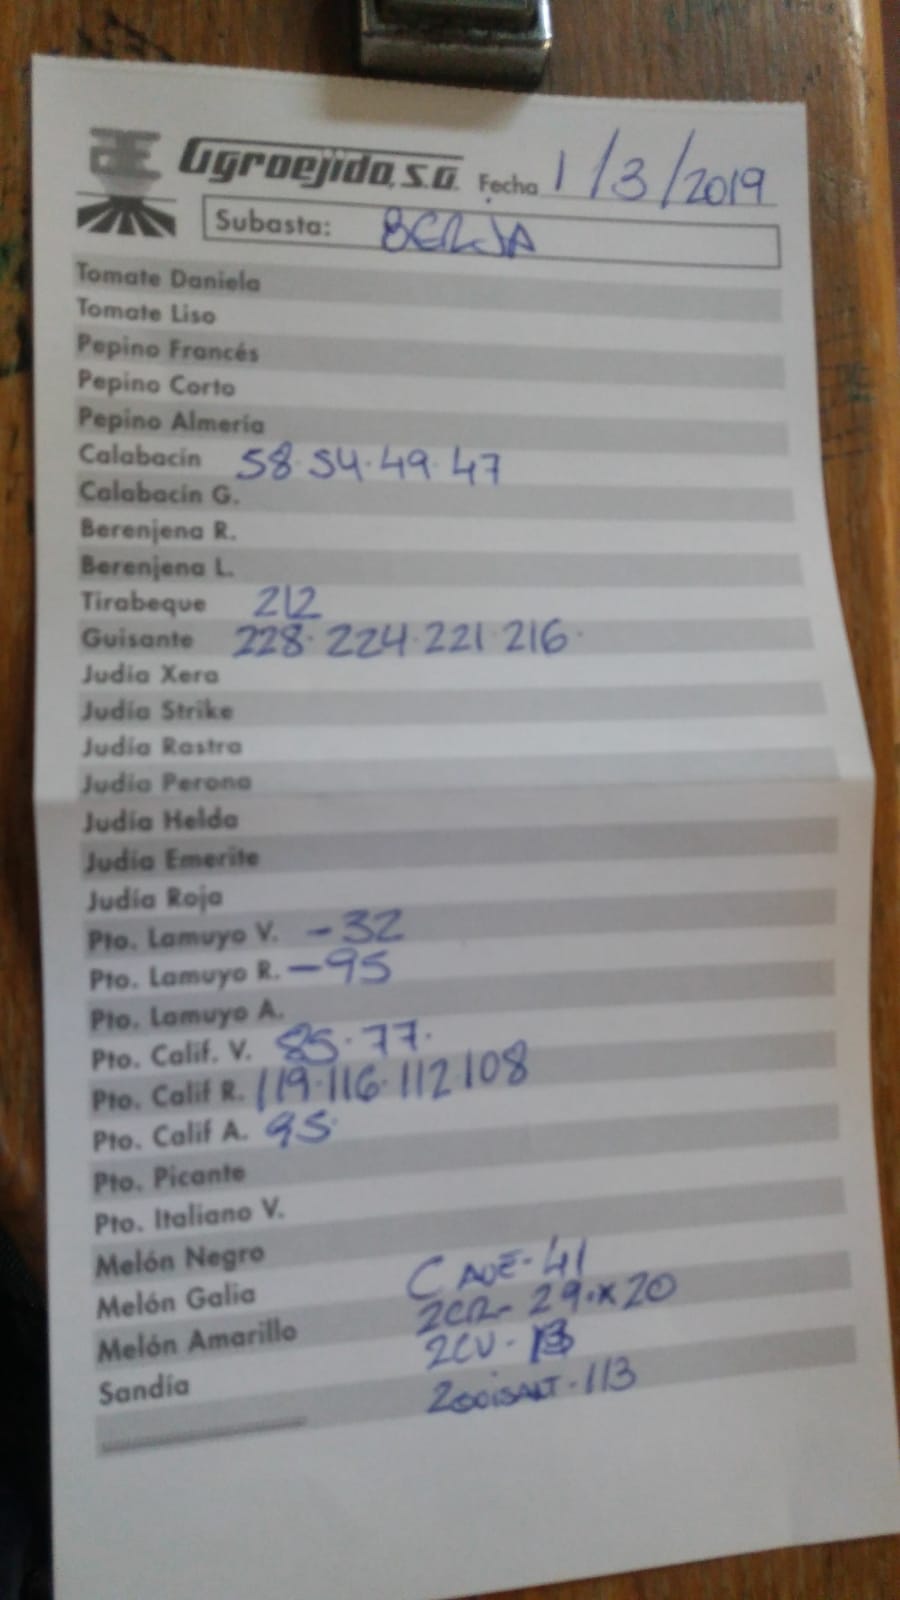 Agroejido, S.A. Fecha 1/3/2019
Subasta: BERJA
Tomate Daniela
Tomate Liso
Pepino Francés
Pepino Corto
Pepino Almería
Calabacín 58.54.49.47
Calabacín G.
Berenjena R.
Berenjena L.
Tirabeque 212
Guisante 228.224.221.216.
Judía Xera
Judía Strike
Judía Rastra
Judía Perona
Judía Helda
Judía Emerite
Judía Roja
Pto. Lamuyo V. -32
Pto. Lamuyo R. -95
Pto. Lamuyo A.
Pto. Calif. V. 85.77.
Pto. Calif R. 119.116.112.108
Pto. Calif A. 95.
Pto. Picante
Pto. Italiano V.
Melón Negro
Melón Galia C -41
Melón Amarillo 2CR- 29.x20
Sandía 2CV. 13
.113